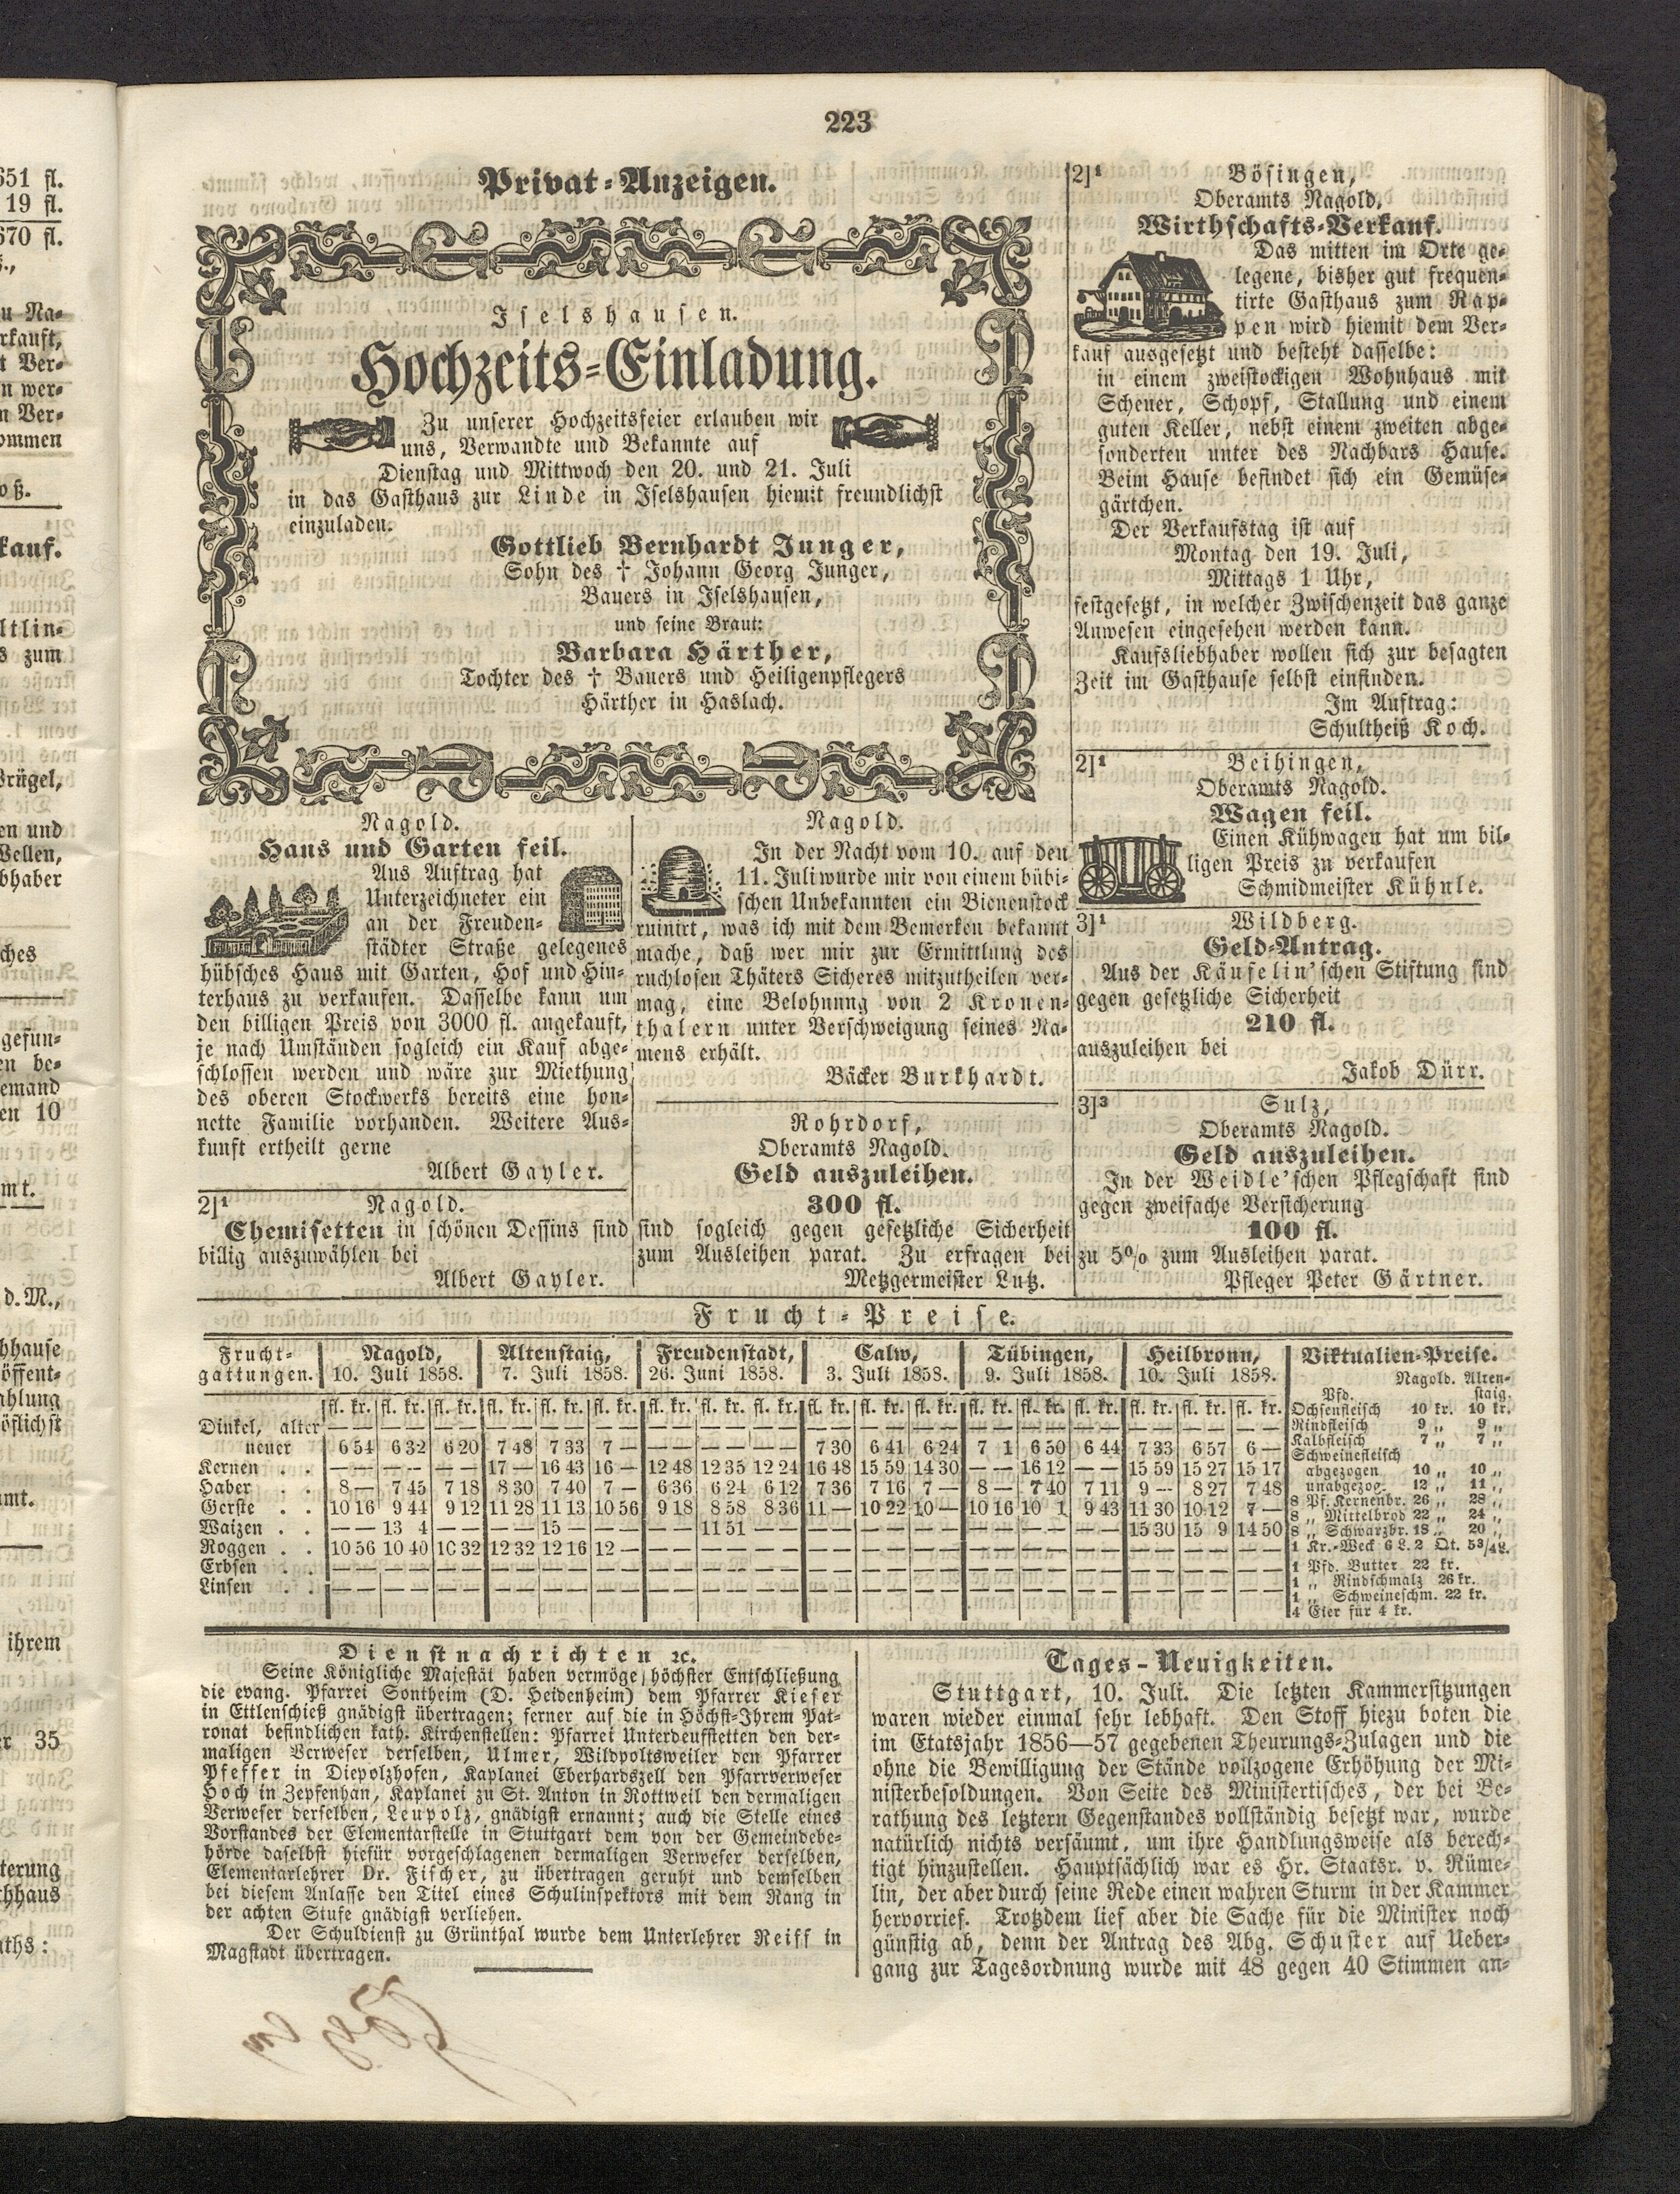 223
Privat-Anzeigen.
Iselshausen.
Hochzeits-Einladung.
Zu unserer Hochzeitsfeier erlauben wir
uns, Verwandte und Bekannte auf
Dienstag und Mittwoch den 20. und 21. Juli
in das Gasthaus zur Linde in Iselshausen hiemit freundlichst
einzuladen.
Gottlieb Bernhardt Junger,
Sohn des † Johann Georg Junger,
Bauers in Iselshausen,
und seine Braut:
Barbara Härther,
Tochter des † Bauers und Heiligenpflegers
Härther in Haslach.
Nagold.
Haus und Garten feil.
Aus Auftrag hat
Unterzeichneter ein
an der Freuden-
städter Straße gelegenes
hübsches Haus mit Garten, Hof und Hin-
terhaus zu verkaufen. Dasselbe kann um
den billigen Preis von 3000 fl. angekauft,
je nach Umständen sogleich ein Kauf abge-
schlossen werden und wäre zur Miethung
des oberen Stockwerks bereits eine hon-
nette Familie vorhanden. Weitere Aus-
kunft ertheilt gerne
Albert Gayler.
2]1 Nagold.
Chemisetten in schönen Dessins sind
billig auszuwählen bei
Albert Gayler.
Nagold.
In der Nacht vom 10. auf den
11. Juli wurde mir von einem bübi-
schen Unbekannten ein Bienenstock
ruinirt, was ich mit dem Bemerken bekannt
mache, daß wer mir zur Ermittlung des
ruchlosen Thäters Sicheres mitzutheilen ver-
mag, eine Belohnung von 2 Kronen-
thalern unter Verschweigung seines Na-
mens erhält.
Bäcker Burkhardt.
Rohrdorf,
Oberamts Nagold.
Geld auszuleihen.
300 fl.
sind sogleich gegen gesetzliche Sicherheit
zum Ausleihen parat. Zu erfragen bei
Metzgermeister Lutz.
2]1 Bösingen,
Oberamts Nagold.
Wirthschafts-Verkauf.
Das mitten im Orte ge-
legene, bisher gut frequen-
tirte Gasthaus zum Rap-
pen wird hiemit dem Ver-
kauf ausgesetzt und besteht dasselbe:
in einem zweistockigen Wohnhaus mit
Scheuer, Schopf, Stallung und einem
guten Keller, nebst einem zweiten abge-
sonderten unter des Nachbars Hause.
Beim Hause befindet sich ein Gemüse-
gärtchen.
Der Verkaufstag ist auf
Montag den 19. Juli,
Mittags 1 Uhr,
festgesetzt, in welcher Zwischenzeit das ganze
Anwesen eingesehen werden kann.
Kaufsliebhaber wollen sich zur besagten
Zeit im Gasthause selbst einfinden.
Im Auftrag:
Schultheiß Koch.
2]1 Beihingen,
Oberamts Nagold.
Wagen feil.
Einen Kühwagen hat um bil-
ligen Preis zu verkaufen
Schmidmeister Kühnle.
3]1 Wildberg.
Geld-Antrag.
Aus der Käufelin'schen Stiftung sind
gegen gesetzliche Sicherheit
210 fl.
auszuleihen bei
Jakob Dürr.
3]3 Sulz,
Oberamts Nagold.
Geld auszuleihen.
In der Weidle'schen Pflegschaft sind
gegen zweifache Versicherung
100 fl.
zu 5% zum Ausleihen parat.
Pfleger Peter Gärtner.
Frucht-Preise.
Frucht- Nagold, Altenstaig, Freudenstadt, Calw, Tübingen, Heilbronn,
gattungen. 10. Juli 1858. 7. Juli 1858. 26. Juni 1858. 3. Juli 1858. 9. Juli 1858. 10. Juli 1858.
fl. kr. fl. kr. fl. kr. fl. kr. fl. kr. fl. kr. fl. kr. fl. kr. fl. kr. fl. kr. fl. kr. fl. kr. fl. kr. fl. kr. fl. kr. fl. kr. fl. kr. fl. kr.
Dinkel, alter — — — — — — — — — — — — — — — — — — — — — — — — — — — — — — — — — — — —
neuer 6 54 6 32 6 20 7 48 7 33 7 — — — — — — — 7 30 6 41 6 24 7 1 6 50 6 44 7 33 6 57 6 —
Kernen . . — — — — — — 17 — 16 43 16 — 12 48 12 35 12 24 16 48 15 59 14 30 — — 16 12 — — 15 59 15 27 15 17
Haber . . 8 — 7 45 7 18 8 30 7 40 7 — 6 36 6 24 6 12 7 36 7 16 7 — 8 — 7 40 7 11 9 — 8 27 7 48
Gerste . . 10 16 9 44 9 12 11 28 11 13 10 56 9 18 8 58 8 36 11 — 10 22 10 — 10 16 10 1 9 43 11 30 10 12 7 —
Waizen . . — — 13 4 — — — — 15 — — — — — 11 51 — — — — — — — — — — — — — — 15 30 15 9 14 50
Roggen . . 10 56 10 40 10 32 12 32 12 16 12 — — — — — — — — — — — — — — — — — — — — — — — — —
Erbsen . . — — — — — — — — — — — — — — — — — — — — — — — — — — — — — — — — — — — —
Linsen . . — — — — — — — — — — — — — — — — — — — — — — — — — — — — — — — — — — — —
Viktualien-Preise.
Nagold. Alten-
Pfd. staig.
Ochsenfleisch 10 kr. 10 kr.
Rindfleisch 9 „ 9 „
Kalbfleisch 7 „ 7 „
Schweinefleisch
abgezogen 10 „ 10 „
unabgezog. 12 „ 11 „
8 Pf. Kernenbr. 26 „ 28 „
8 „ Mittelbrod 22 „ 24 „
8 „ Schwarzbr. 18 „ 20 „
1 Kr.-Weck 6 L. 2 Qt. 5 3/4 L.
1 Pfd. Butter 22 kr.
1 „ Rindschmalz 26 kr.
1 „ Schweineschm. 22 kr.
4 Eier für 4 kr.
Dienstnachrichten ꝛc.
Seine Königliche Majestät haben vermöge höchster Entschließung
die evang. Pfarrei Sontheim (D. Heidenheim) dem Pfarrer Kiefer
in Ettlenschieß gnädigst übertragen; ferner auf die in Höchst-Ihrem Pat-
ronat befindlichen kath. Kirchenstellen: Pfarrei Unterdeufstetten den der-
maligen Verweser derselben, Ulmer, Wildpoltsweiler den Pfarrer
Pfeffer in Diepolzhofen, Kaplanei Eberhardszell den Pfarrverweser
Hoch in Zepfenhan, Kaplanei zu St. Anton in Rottweil den dermaligen
Verweser derselben, Leupolz, gnädigst ernannt; auch die Stelle eines
Vorstandes der Elementarstelle in Stuttgart dem von der Gemeindebe-
hörde daselbst hiefür vorgeschlagenen dermaligen Verweser derselben,
Elementarlehrer Dr. Fischer, zu übertragen geruht und demselben
bei diesem Anlasse den Titel eines Schulinspektors mit dem Rang in
der achten Stufe gnädigst verliehen.
Der Schuldienst zu Grünthal wurde dem Unterlehrer Reiff in
Magstadt übertragen.
Tages-Neuigkeiten.
Stuttgart, 10. Juli. Die letzten Kammersitzungen
waren wieder einmal sehr lebhaft. Den Stoff hiezu boten die
im Etatsjahr 1856—57 gegebenen Theurungs-Zulagen und die
ohne die Bewilligung der Stände vollzogene Erhöhung der Mi-
nisterbesoldungen. Von Seite des Ministertisches, der bei Be-
rathung des letztern Gegenstandes vollständig besetzt war, wurde
natürlich nichts versäumt, um ihre Handlungsweise als berech-
tigt hinzustellen. Hauptsächlich war es Hr. Staatsr. v. Rüme-
lin, der aber durch seine Rede einen wahren Sturm in der Kammer
hervorrief. Trotzdem lief aber die Sache für die Minister noch
günstig ab, denn der Antrag des Abg. Schuster auf Ueber-
gang zur Tagesordnung wurde mit 48 gegen 40 Stimmen an-